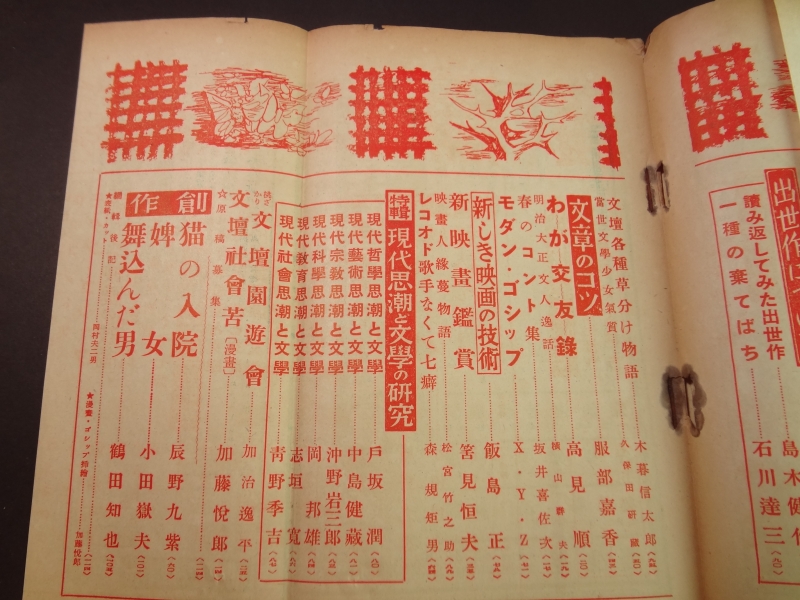 出世作
読み返してみた出世作
一種の棄てばち
島木健作
石川達三
文壇各種草分け物語 木暮信太郎
當世文學少女氣質 久保田研藏
文章のコツ 服部嘉香
わが交友錄 高見順
明治大正文人逸話 横山群夫
春のコント集 坂井喜佐次
モダン・ゴシップ X・Y・Z
新しき映画の技術 飯島正
新映畫鑑賞 筈見恒夫
映畫人緣蔓物語 松宮竹之助
レコオド歌手なくて七癖 森規矩男
特輯 現代思潮と文學の研究
現代哲學思潮と文學 戸坂潤
現代藝術思潮と文學 中島健藏
現代宗敎思潮と文學 沖野岩三郎
現代科學思潮と文學 岡邦雄
現代敎育思潮と文學 志垣寛
現代社會思潮と文學 靑野季吉
文壇園遊會 加治逸平
文壇社會苦〔漫畫〕 加藤悅郎
☆原稿募集
創作
猫の入院 辰野九紫
婢女 小田嶽夫
舞込んだ男 鶴田知也
編輯後記
★表紙・カット 岡村夫二男
★漫畫・ゴシップ挿繪 加藤悅郎